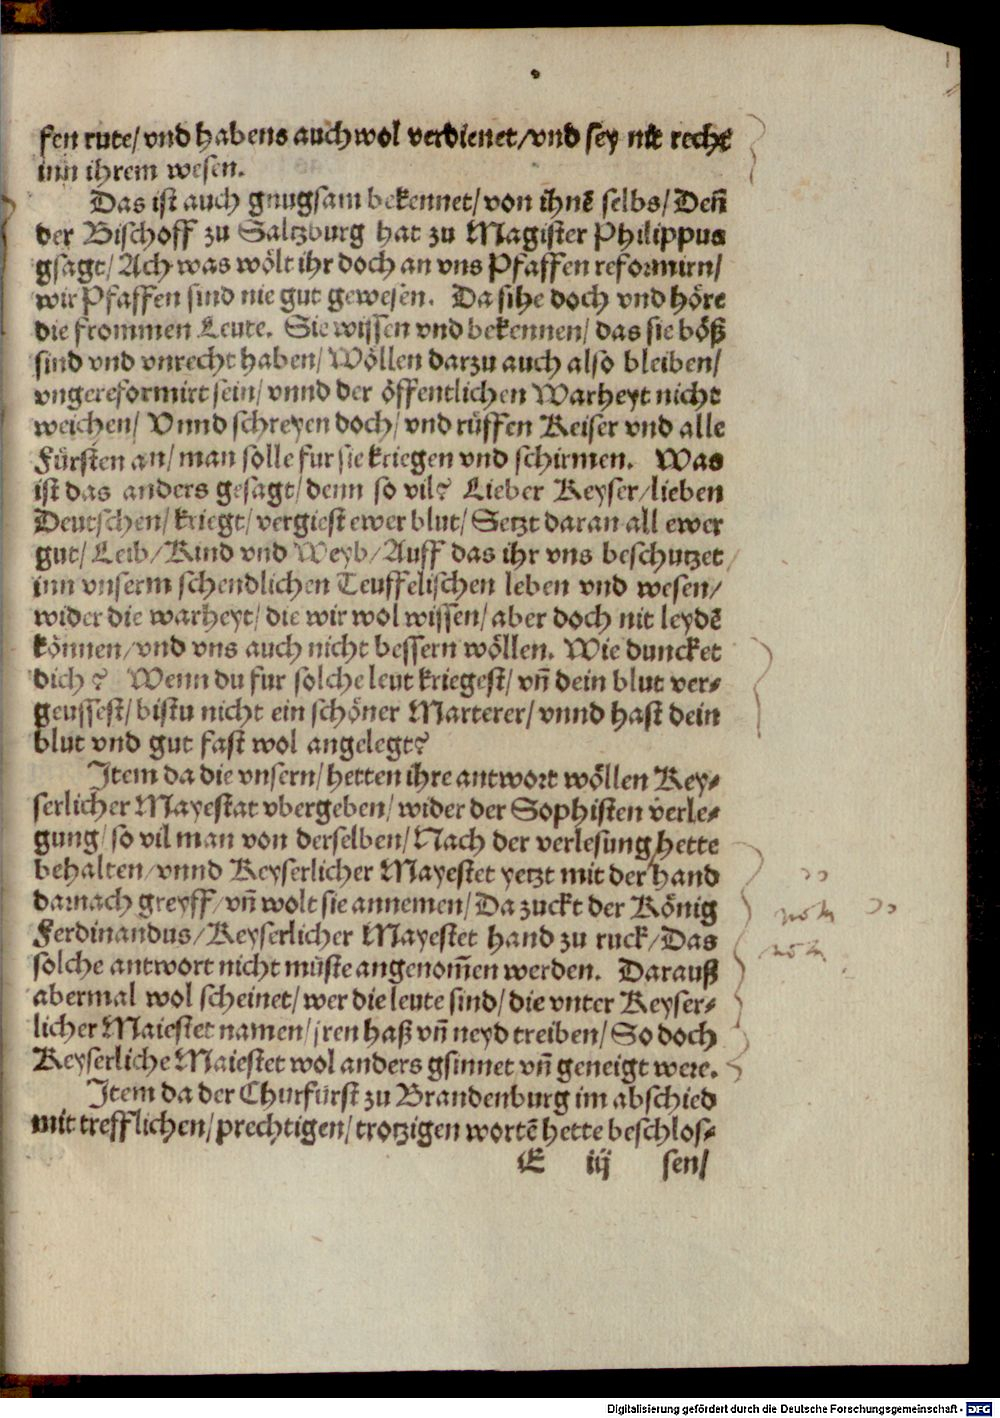 fen rute/ vnd habens auch wol verdienet/ vnd sey nit recht
inn ihrem wesen.
Das ist auch gnugsam bekennet/ von ihnē selbs/ Deñ
der Bischoff zu Saltzburg hat zu Magister Philippus
gsagt/ Ach was wölt ihr doch an vns Pfaffen reformirn/
wir Pfaffen sind nie gut gewesen. Da sihe doch vnd höre
die frommen Leute. Sie wissen vnd bekennen/ das sie böß
sind vnd vnrecht haben/ Wöllen darzu auch also bleiben/
vngereformirt sein/ vnnd der öffentlichen Warheyt nicht
weichen/ Vnnd schreyen doch/ vnd rüffen Keiser vnd alle
Fürsten an/ man solle fur sie kriegen vnd schirmen. Was
ist das anders gesagt/ denn so vil? Lieber Keyser/ lieben
Deutschen/ kriegt/ vergiest ewer blut/ Setzt daran all ewer
gut/ Leib/ Kind vnd Weyb/ Auff das ihr vns beschutzet/
inn vnserm schendlichen Teuffelischen leben vnd wesen/
wider die warheyt/ die wir wol wissen/ aber doch nit leydē
können/ vnd vns auch nicht bessern wöllen. Wie duncket
dich? Wenn du fur solche leut kriegest/ vñ dein blut ver-
geussest/ bistu nicht ein schöner Marterer/ vnnd hast dein
blut vnd gut fast wol angelegt?
Item da die vnsern/ hetten ihre antwort wöllen Key-
serlicher Mayestat vbergeben/ wider der Sophisten verle-
gung/ so vil man von derselben/ Nach der verlesung hette
behalten/ vnnd Keyserlicher Mayestet yetzt mit der hand
darnach greyff/ vñ wolt sie annemen/ Da zuckt der König
Ferdinandus/ Keyserlicher Mayestet hand zu ruck/ Das
solche antwort nicht müste angenom̄en werden. Darauß
abermal wol scheinet/ wer die leute sind/ die vnter Keyser-
licher Maiestet namen/ jren haß vñ neyd treiben/ So doch
Keyserliche Maiestet wol anders gsinnet vñ geneigt were.
Item da der Churfürst zu Brandenburg im abschied
mit trefflichen/ prechtigen/ trotzigen wortē hette beschlos-
E iij sen/
Digitalisierung gefördert durch die Deutsche Forschungsgemeinschaft - DFG